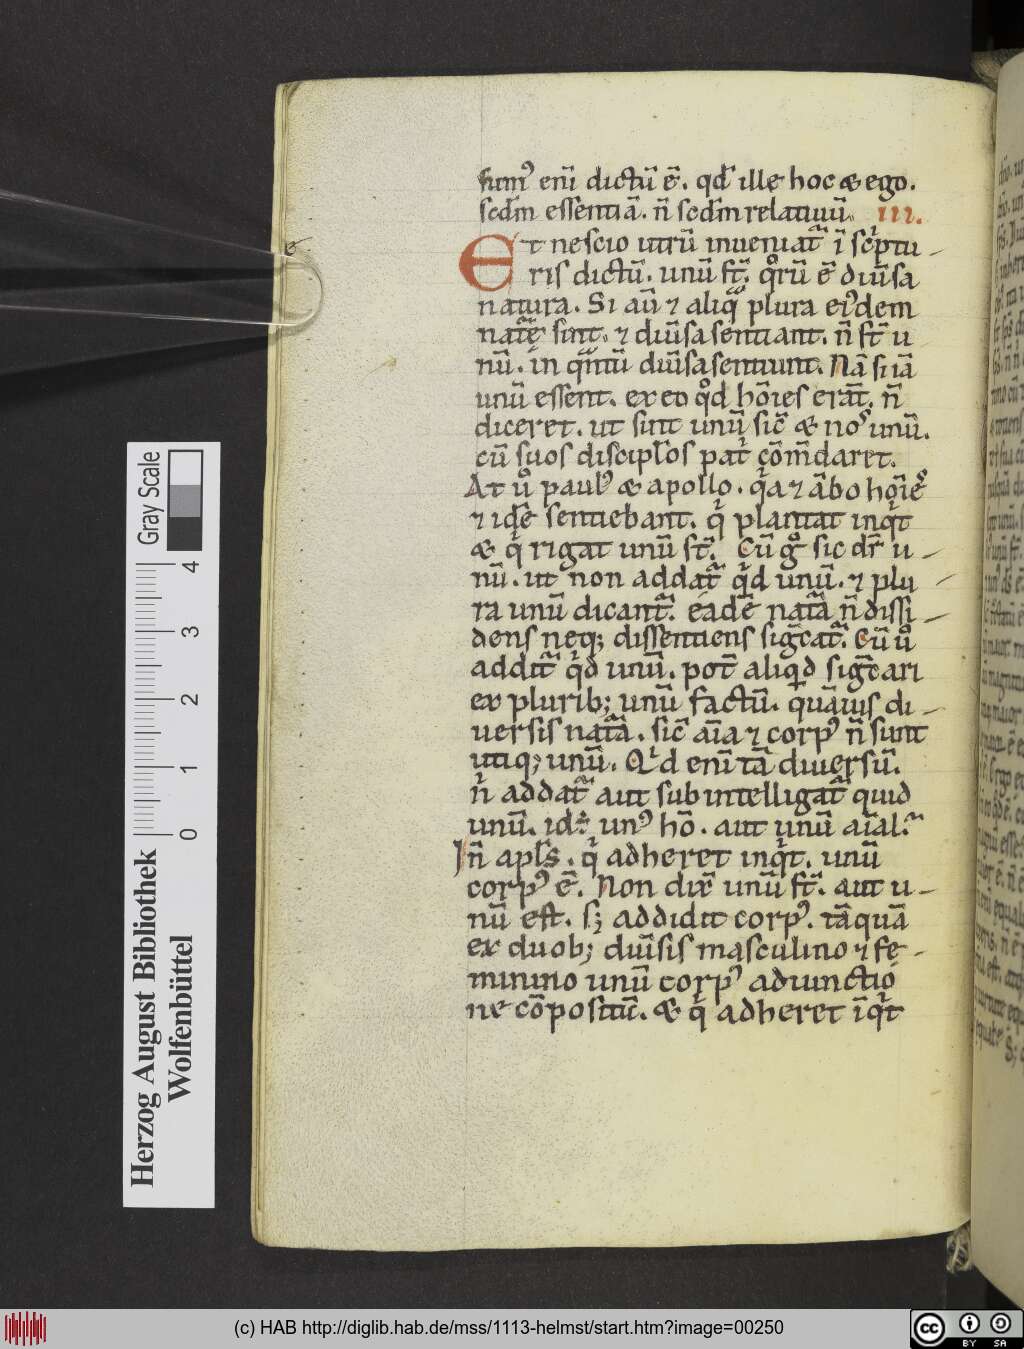 sum᷒ eni̅ dictu̅ e̅. qd̅ ille hoc & ego.
scd̅m essentia̅. n̅ scd̅m relatiuu̅. III.
Et nescio utru̅ inueniat᷑ i̅ scͥptu-
ris dictu̅. unu̅ st̅. qͦru̅ e̅ diu̅sa
natura. Si au̅ ⁊ aliqᷓ plura ei᷒dem
nat̅e̅ sint. ⁊ diu̅sa sentiant. n̅ st̅ u
nu̅. in qᷓntu̅ diu̅sa sentiunt. Na̅ si ia̅
unu̅ essent. ex eo qͦd ho̅ies era̅t. n̅
diceret. ut sint unu̅ sic̅ & nos᷒ unu̅.
cu̅ suos discipl̅os patͥ co̅m̅daret.
At uͦ paul᷒ & apollo. qͥa ⁊ a̅bo ho̅ie᷒
⁊ ide̅ sentiebant. qͥ plantat inqͥt
& qͥ rigat unu̅ st̅. Cu̅ gͦ sic dr̅ u-
nu̅. ut non addat᷑ qͥd unu̅. ⁊ plu-
ra unu̅ dicant᷑. eade̅ nat̅a̅ n̅ dissi-
dens neq; dissentiens sig̅cat᷑. Cu̅ uͦ
addit᷑ qͥd unu̅. pot̅ aliqͥd sig̅cari
ex plurib; unu̅ factu̅. qua̅uis di-
uersis nat̅a̅. sic̅ ai̅a ⁊ corp᷒ n̅ sunt
utiq; unu̅. Qͥd eni̅ ta̅ diuersu̅.
nͥ addat᷑ aut subintelligat᷑ quid
unu̅. id.ͤ. un᷒ ho̅. aut unu̅ ai̅al.
In̅ apl̅s. qͥ adheret inqͥt. unu̅
corp᷒ e̅. Non dix̅ unu̅ st̅. aut u-
nu̅ est. s; addidit corp᷒. ta̅qua̅
ex duob; diu̅sis masculino ⁊ fe-
minino unu̅ corp᷒ adiunctio
ne co̅positu̅. & qͥ adheret i̅qͥt
Gray Scale
4
3
2
1
0
Herzog August Bibliothek
Wolfenbüttel
(c) HAB http://diglib.hab.de/mss/1113-helmst/start.htm?image=00250
cc BY SA